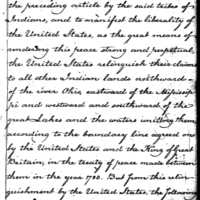 the preceding article by the said tribes of
Indians, and to manifest the liberality of
the United States, as the great means of
rendering this peace strong and perpetual,
the United States relinquish their claims
to all other Indian lands northward
of the river Ohio, eastward of the Mississip-
pi and westward and southward of the
great Lakes and the waters uniting them
according to the boundary line agreed on
by the United States and the King of Great
Britain, in the treaty of peace made between
them in the year 1783. But from this relin-
quishment by the United States, the following